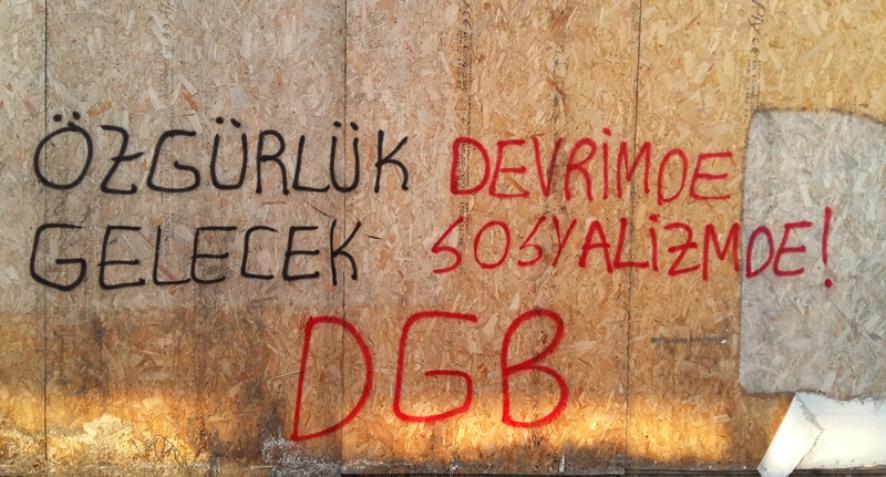 ÖZGÜRLÜK DEVRİMDE
GELECEK SOSYALİZMDE!
DGB